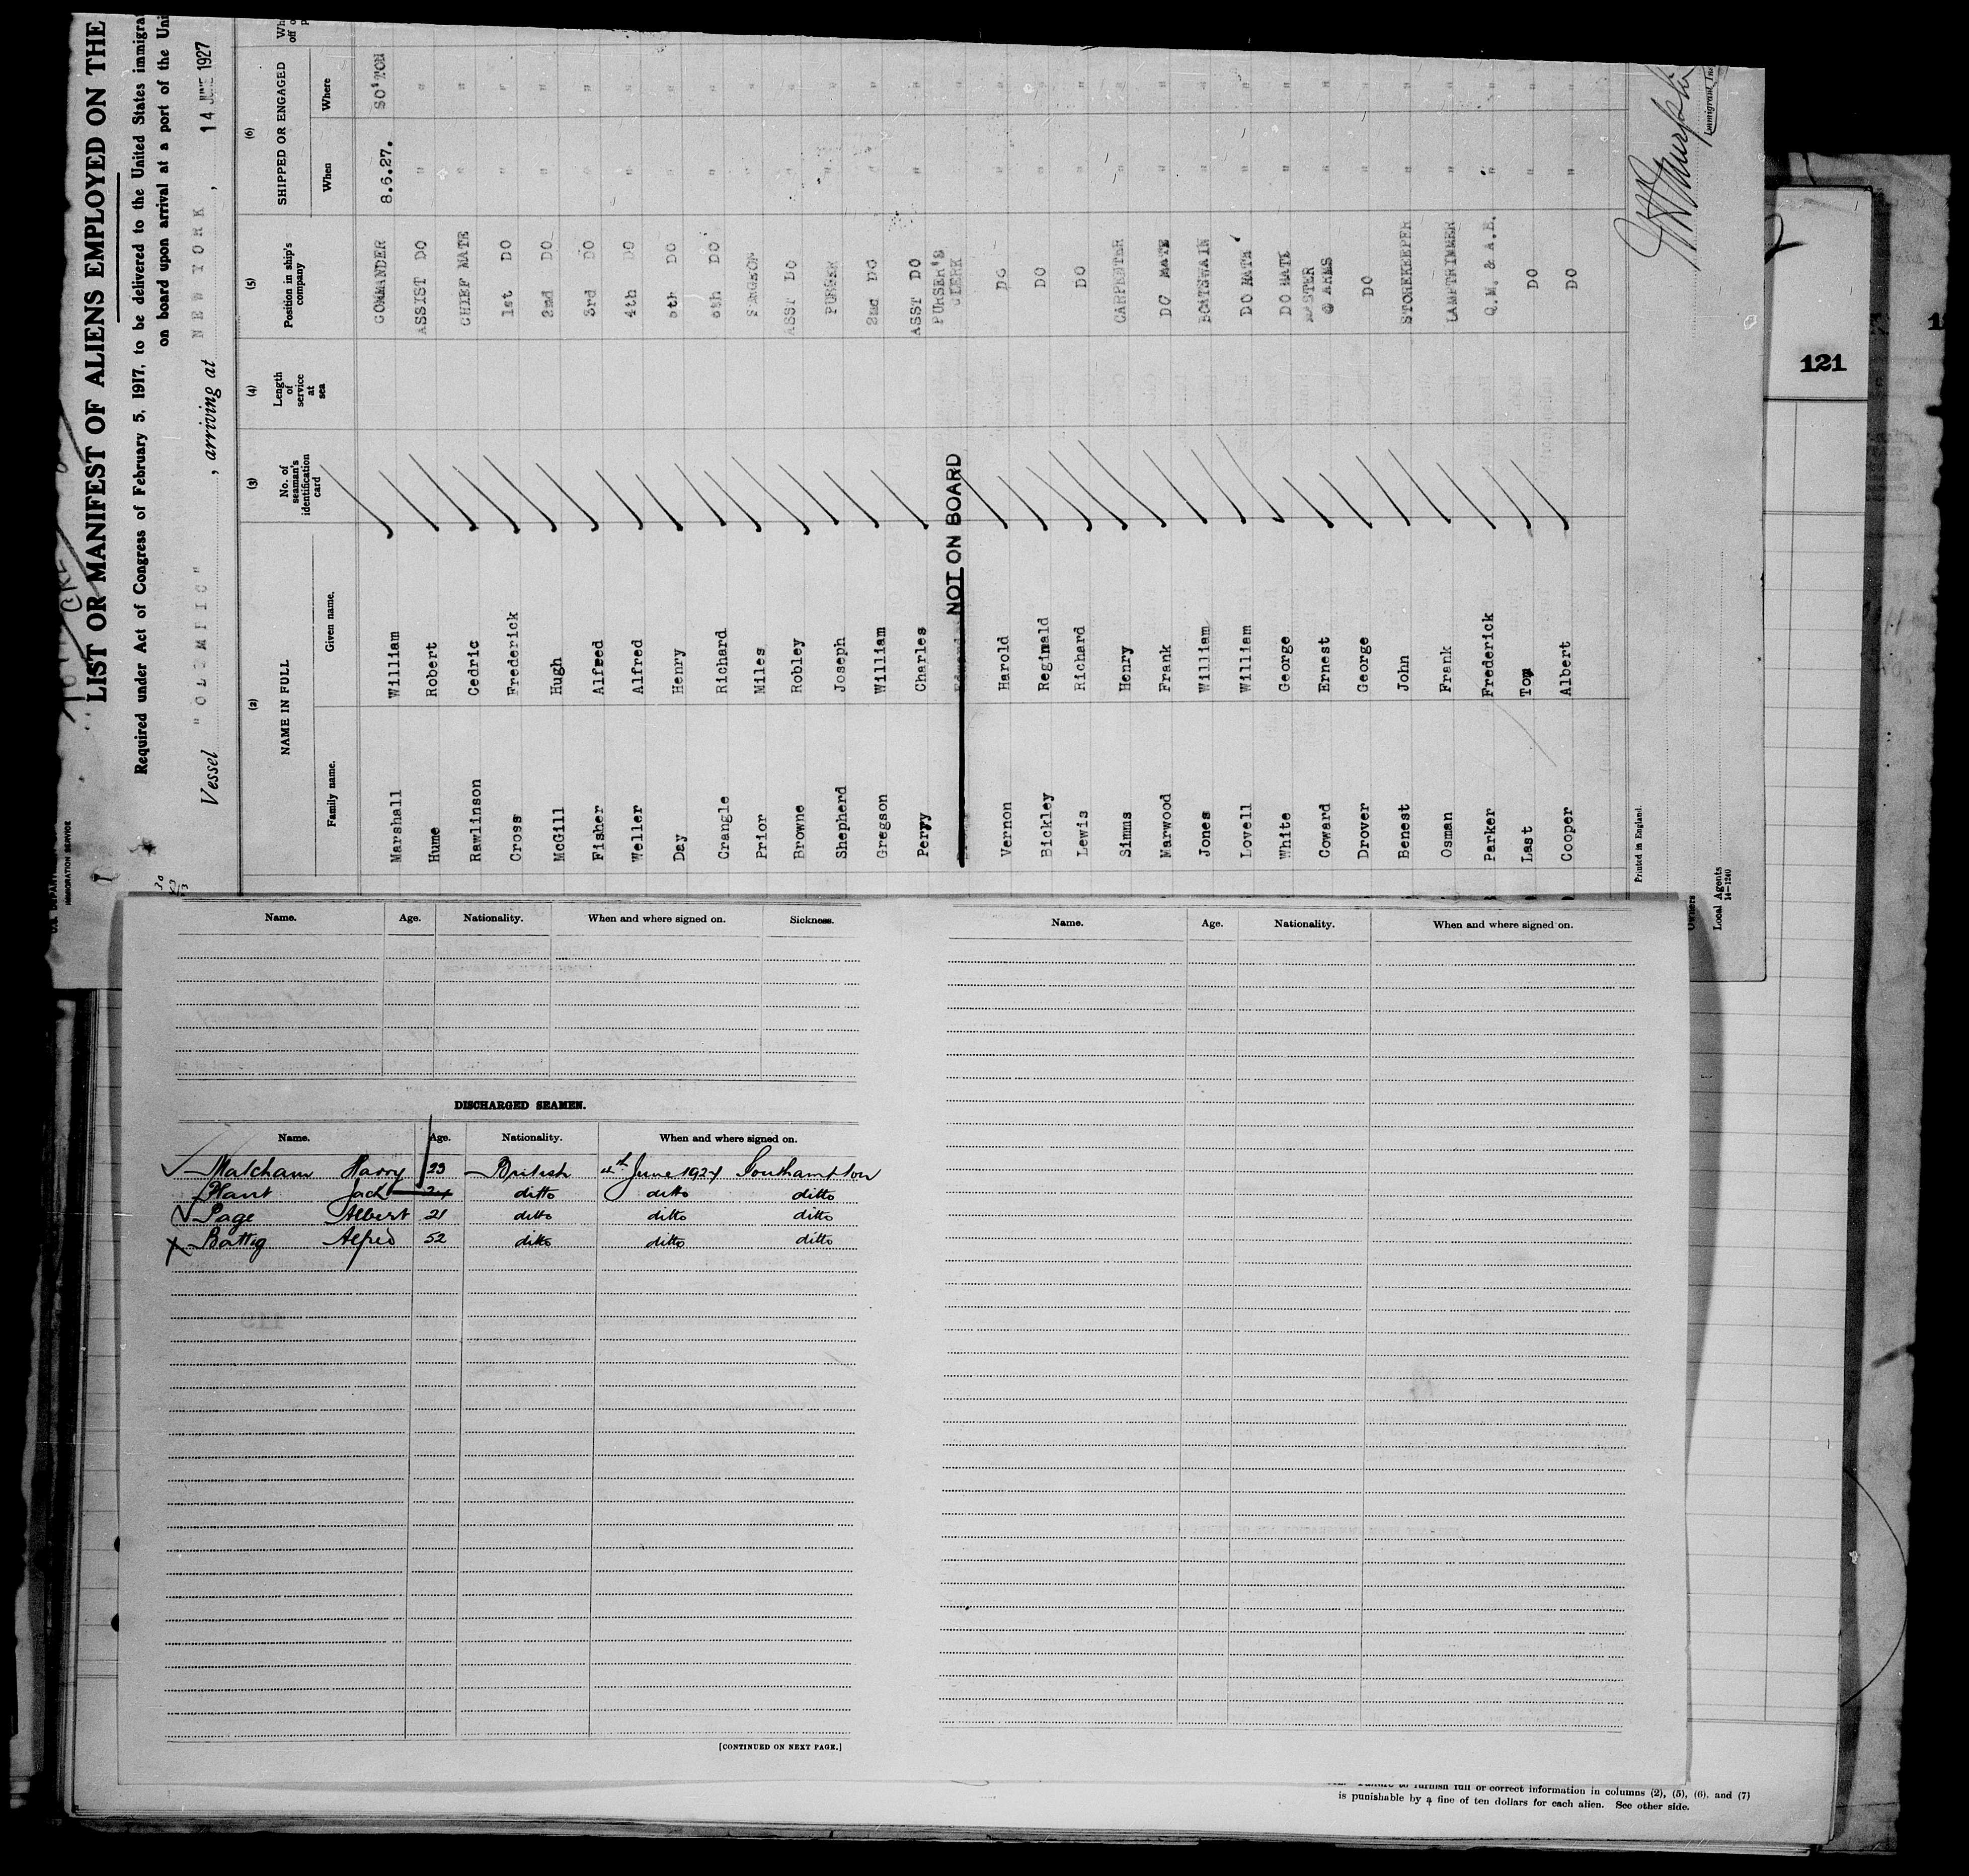 LIST OR MANIFEST OF ALIENS EMPLOYED ON THE
Required under Act of Congress of February 5, 1917, to be delivered to the United States immigra
on board upon arrival at a port of the Uni
Vessel "OLYMPIC", arriving at NEW YORK, 14 JUNE 1927
IMMIGRATION SERVICE
(2) (3) (4) (5) (6)
NAME IN FULL No. of seaman's identification card Length of service at sea Position in ship's company SHIPPED OR ENGAGED
Family name. Given name. When Where
Marshall William COMMANDER 8.6.27. SO'TON
Hume Robert ASSIST DO " "
Rawlinson Cedric CHIEF MATE " "
Cross Frederick 1st DO " "
McGill Hugh 2nd DO " "
Fisher Alfred 3rd DO " "
Weller Alfred 4th DO " "
Day Henry 5th DO " "
Crangle Richard 6th DO " "
Prior Miles SURGEON " "
Browne Robley ASST DO " "
Shepherd Joseph PURSER " "
Gregson William 2nd DO " "
Perry Charles ASST DO " "
NOT ON BOARD PURSER'S CLERK " "
Vernon Harold DO " "
Bickley Reginald DO " "
Lewis Richard DO " "
Simms Henry CARPENTER " "
Marwood Frank DO MATE " "
Jones William BOATSWAIN " "
Lovell William DO MATE " "
White George DO MATE " "
Coward Ernest MASTER @ ARMS " "
Drover George DO " "
Benest John STOREKEEPER " "
Osman Frank LAMPTRIMMER " "
Parker Frederick Q.M. & A.B. " "
Last Tom DO " "
Cooper Albert DO " "
Printed in England.
Owners
Local Agents
14—1240
Immigrant Ins
121
Name. Age. Nationality. When and where signed on. Sickness.
DISCHARGED SEAMEN.
Name. Age. Nationality. When and where signed on.
Malcham Harry 23 British June 1927 Southampton
Plant Jack 24 ditto ditto ditto
Page Albert 21 ditto ditto ditto
Battig Alfred 52 ditto ditto ditto
[CONTINUED ON NEXT PAGE.]
Name. Age. Nationality. When and where signed on.
to furnish full or correct information in columns (2), (5), (6), and (7)
is punishable by a fine of ten dollars for each alien. See other side.